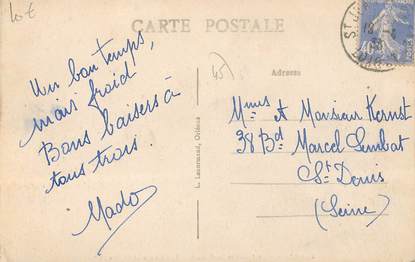 lot
CARTE POSTALE
Un bon temps,
mais froid!
Bons baisers à
tous trois.
Mado
45)
L. Lenormand, Orléans
Adresse
Mmes et Monsieur Kernst
38 Bd Marcel Sembat
St Denis
(Seine)